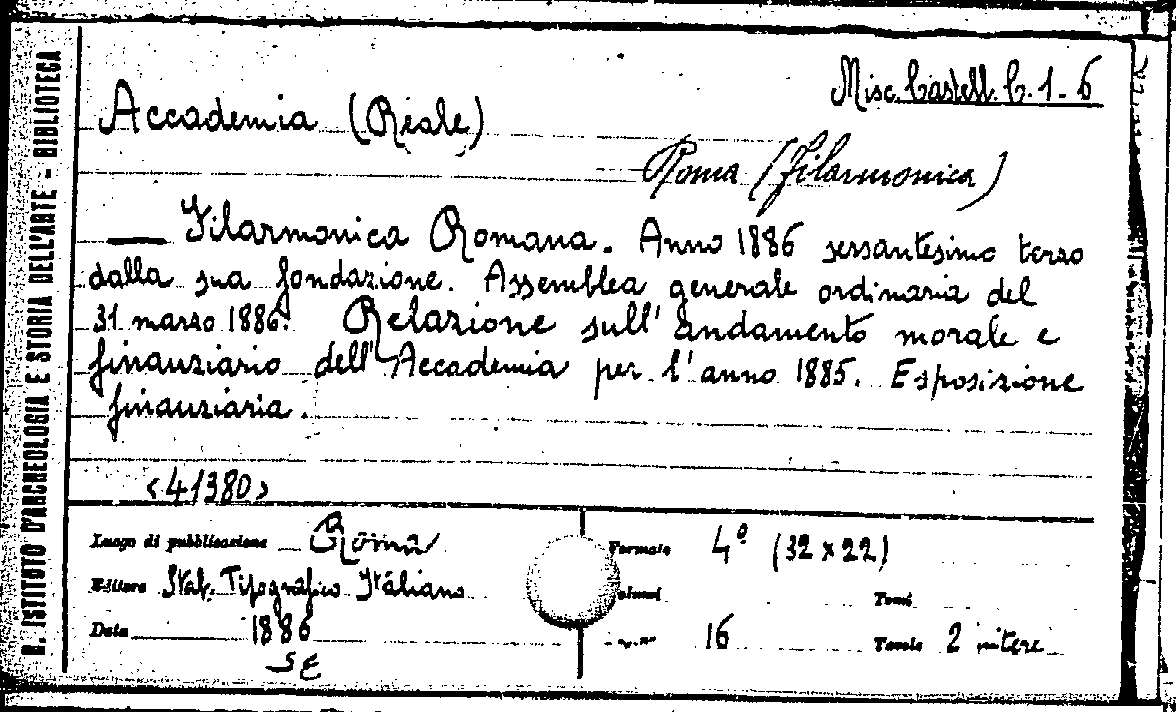 R. ISTITUTO D'ARCHEOLOGIA E STORIA DELL'ARTE - BIBLIOTECA
Misc. Castell. C. 1-6
Accademia (Reale)
Roma (Filarmonica)
— Filarmonica Romana. Anno 1886 sessantesimo terzo
dalla sua fondazione. Assemblea generale ordinaria del
31 marzo 1886. Relazione sull'andamento morale e
finanziario dell'Accademia per l'anno 1885. Esposizione
finanziaria.
<41380>
Luogo di pubblicazione Roma
Editore Stab. Tipografico Italiano
Data 1886
Formato 4º (32 x 22)
Tomi
16
Tavole 2 intere